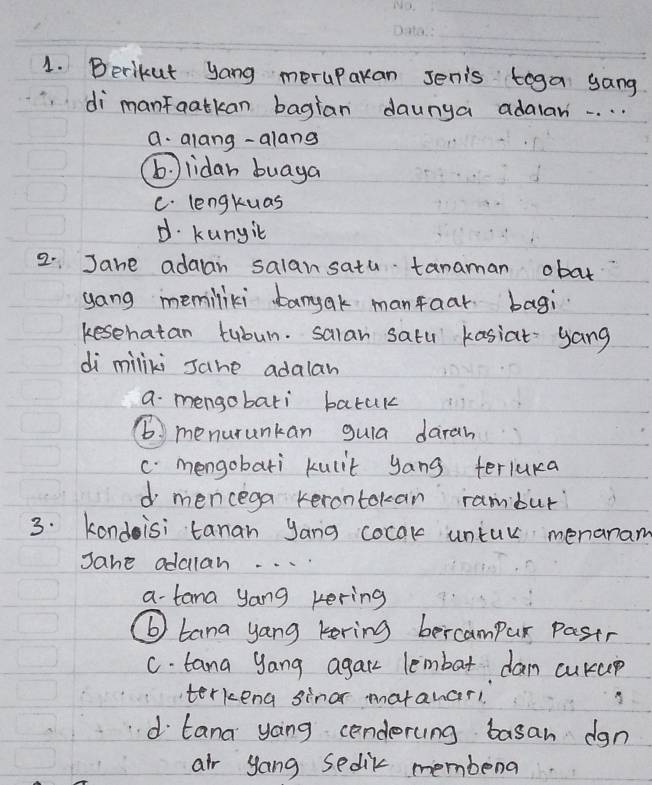 No. :
Date :
1. Berikut yang merupakan jenis toga yang
di manfaatkan bagian daunya adalah ....
a. alang-alang
b. lidah buaya
c. lengkuas
d. kunyit
2. Jahe adalah salah satu tanaman obat
yang memiliki banyak manfaat bagi
kesehatan tubuh. salah satu kasiat yang
di miliki Jahe adalah
a. mengobati batuk
b. menurunkan gula darah
c. mengobati kulit yang terluka
d. mencega kerontokan rambut
3. kondoisi tanah yang cocok untuk menanam
Jahe adalah ....
a. tana yang kering
b. tana yang kering bercampur Pasir
c. tana yang agak lembat dan cukup
terkena sinar matahari.
d. tana yang cenderung basah dgn
air yang sedik membena